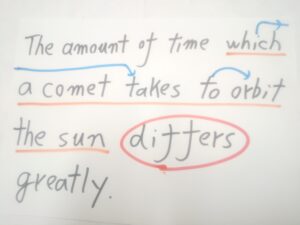 The amount of time which
a comet takes to orbit
the sun differs
greatly.